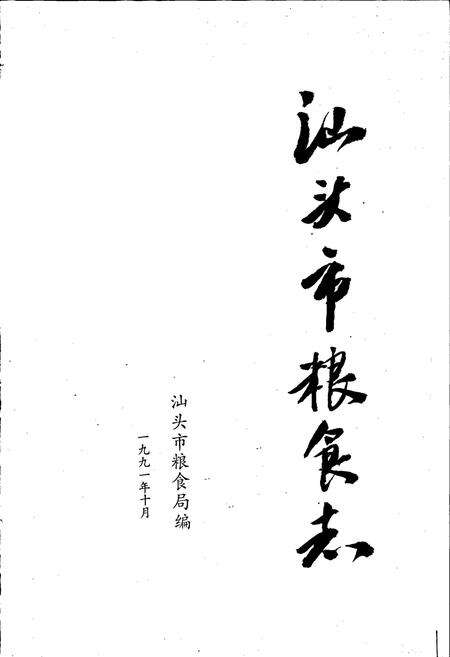 汕头市粮食志
汕头市粮食局编
一九九一年十月